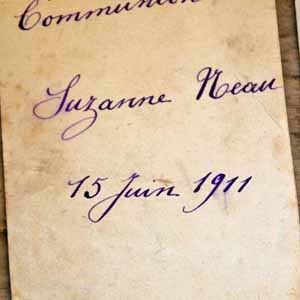 Communion
Suzanne Neau
15 Juin 1911